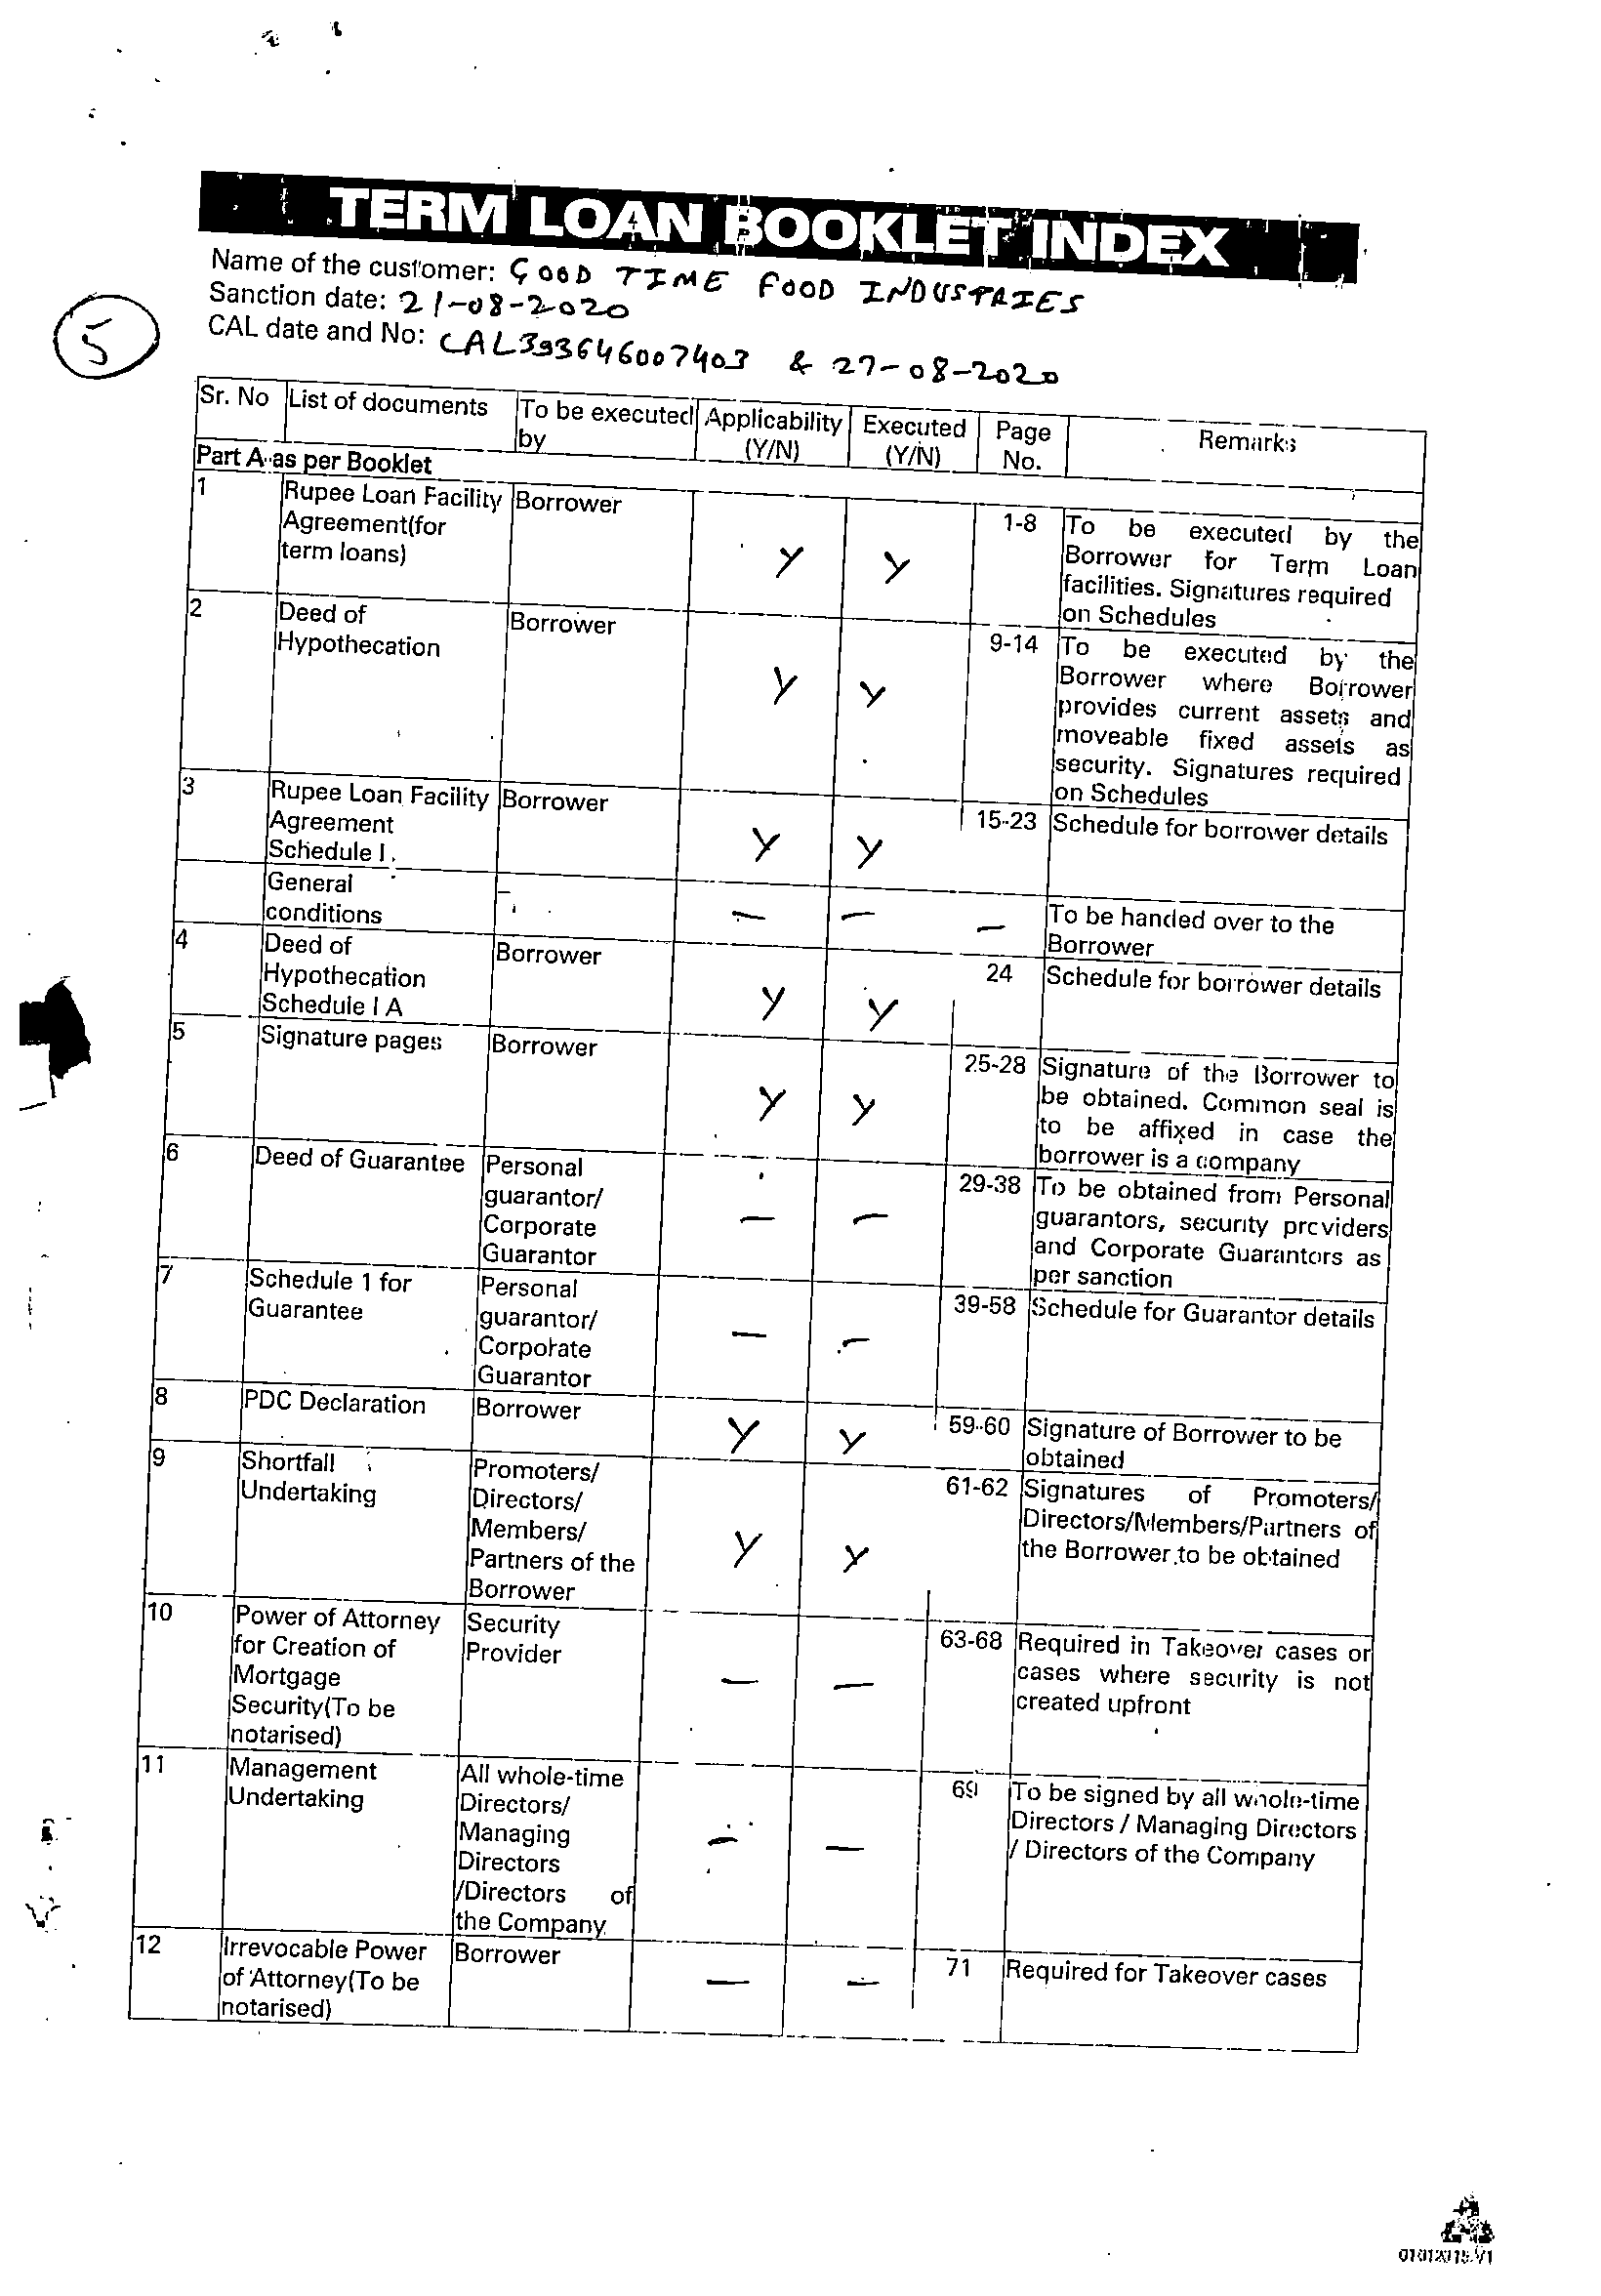 TERM LOAN BOOKLET INDEX
Name of the customer: GOOD TIME FOOD INDUSTRIES
Sanction date: 21-08-2020
CAL date and No: CAL393646007403 & 27-08-2020
5
Sr. No List of documents To be executed by Applicability (Y/N) Executed (Y/N) Page No. Remarks
Part A as per Booklet
1 Rupee Loan Facility Agreement(for term loans) Borrower Y Y 1-8 To be executed by the Borrower for Term Loan facilities. Signatures required on Schedules
2 Deed of Hypothecation Borrower Y Y 9-14 To be executed by the Borrower where Borrower provides current assets and moveable fixed assets as security. Signatures required on Schedules
3 Rupee Loan Facility Agreement Schedule I Borrower Y Y 15-23 Schedule for borrower details
General conditions – — — — To be handed over to the Borrower
4 Deed of Hypothecation Schedule I A Borrower Y Y 24 Schedule for borrower details
5 Signature pages Borrower Y Y 25-28 Signature of the Borrower to be obtained. Common seal is to be affixed in case the borrower is a company
6 Deed of Guarantee Personal guarantor/ Corporate Guarantor — — 29-38 To be obtained from Personal guarantors, security providers and Corporate Guarantors as per sanction
7 Schedule 1 for Guarantee Personal guarantor/ Corporate Guarantor — — 39-58 Schedule for Guarantor details
8 PDC Declaration Borrower Y Y 59-60 Signature of Borrower to be obtained
9 Shortfall Undertaking Promoters/ Directors/ Members/ Partners of the Borrower Y Y 61-62 Signatures of Promoters/ Directors/Members/Partners of the Borrower to be obtained
10 Power of Attorney for Creation of Mortgage Security(To be notarised) Security Provider — — 63-68 Required in Takeover cases or cases where security is not created upfront
11 Management Undertaking All whole-time Directors/ Managing Directors /Directors of the Company — — 69 To be signed by all whole-time Directors / Managing Directors / Directors of the Company
12 Irrevocable Power of Attorney(To be notarised) Borrower — — 71 Required for Takeover cases